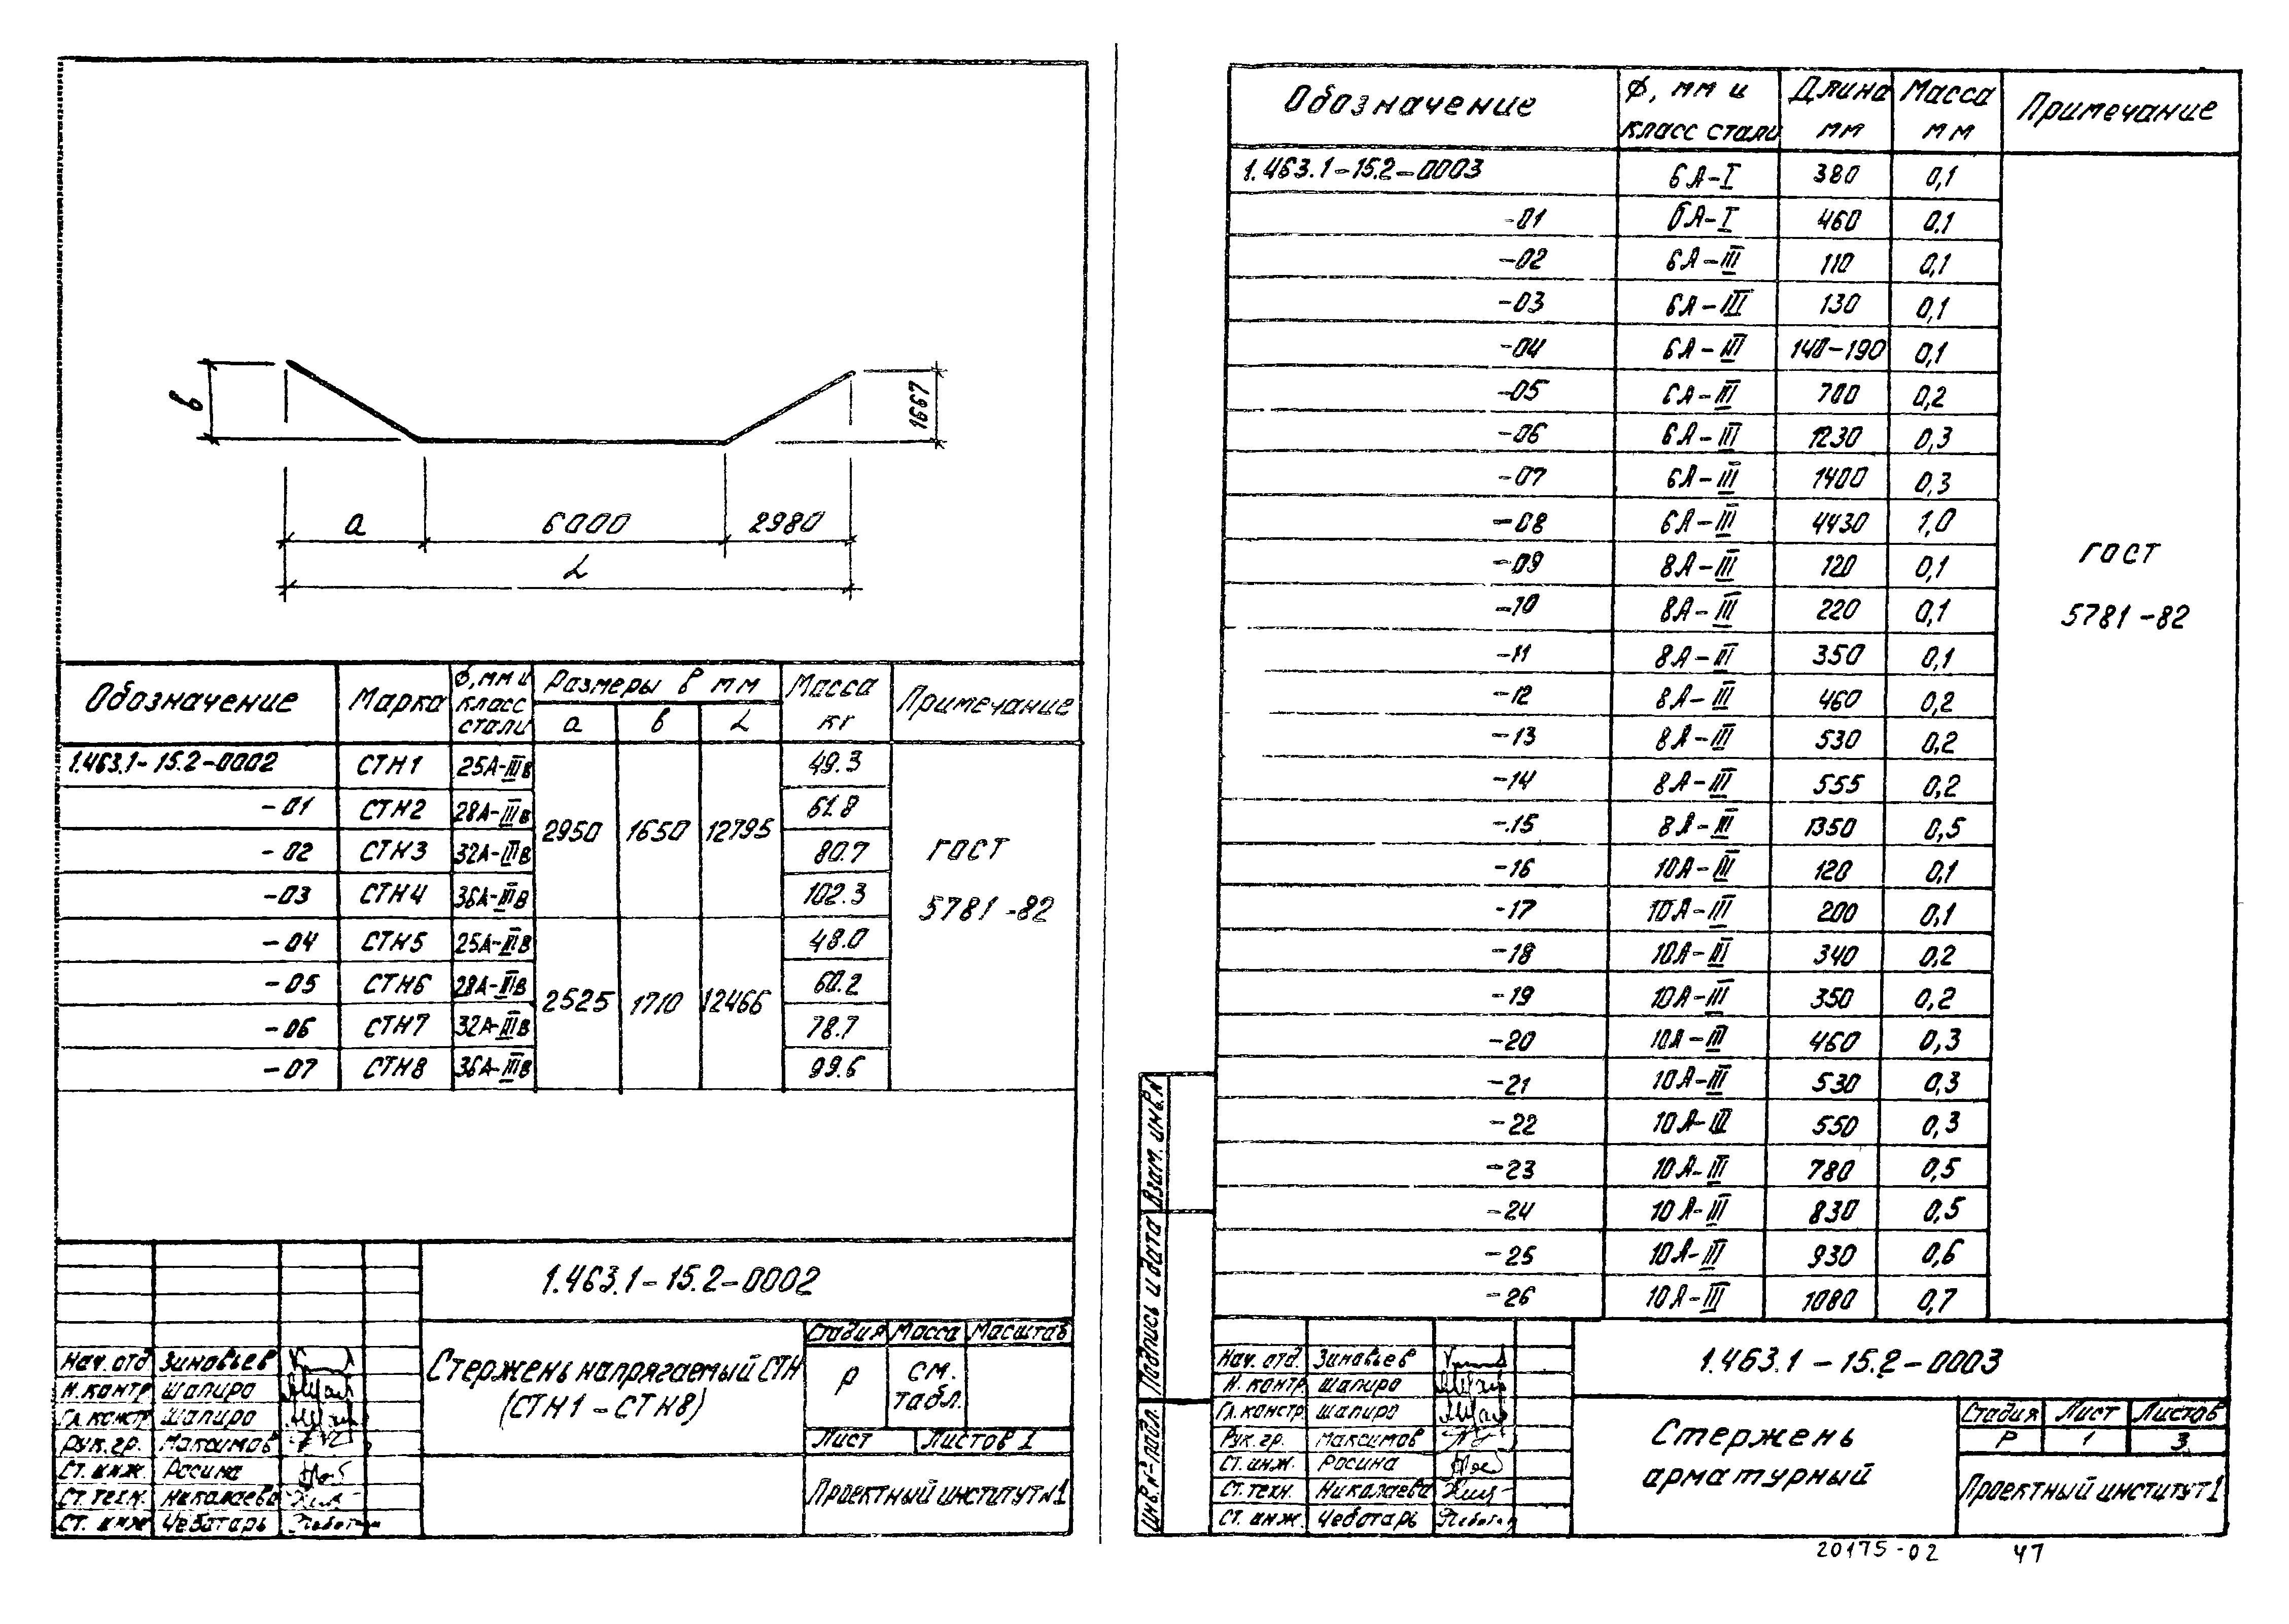 в
1667
а
6000
2980
L
Обозначение Марка ф, мм и класс стали Размеры в мм Масса кг Примечание
а в L
1.463.1-15.2-0002 СТН1 25А-IIIв 2950 1650 12795 49.3 ГОСТ 5781-82
-01 СТН2 28А-IIIв 61.8
-02 СТН3 32А-IIIв 80.7
-03 СТН4 36А-IIIв 102.3
-04 СТН5 25А-IIIв 2525 1710 12466 48.0
-05 СТН6 28А-IIIв 60.2
-06 СТН7 32А-IIIв 78.7
-07 СТН8 36А-IIIв 99.6
1.463.1-15.2-0002
Стержень напрягаемый СТН
(СТН1-СТН8)
Стадия Масса Масштаб
Р см. табл.
Лист Листов 1
Проектный институт №1
Нач. отд Зиновьев
Н. контр Шапиро
Гл. констр Шапиро
Рук. гр. Максимов
Ст. инж. Росина
Ст. техн. Николаева
Ст. инж Чеботарь
Обозначение ф, мм и класс стали Длина мм Масса мм Примечание
1.463.1-15.2-0003 6А-I 380 0,1
-01 6А-I 460 0.1
-02 6А-III 110 0,1
-03 6А-III 130 0,1
-04 6А-III 140-190 0,1
-05 6А-III 700 0,2
-06 6А-III 1230 0,3
-07 6А-III 1400 0,3
-08 6А-III 4430 1,0
-09 8А-III 120 0,1
-10 8А-III 220 0,1
-11 8А-III 350 0,1
-12 8А-III 460 0,2
-13 8А-III 530 0,2
-14 8А-III 555 0,2
-15 8А-III 1350 0,5
-16 10А-III 120 0,1
-17 10А-III 200 0,1
-18 10А-III 340 0,2
-19 10А-III 350 0,2
-20 10А-III 460 0,3
-21 10А-III 530 0,3
-22 10А-III 550 0,3
-23 10А-III 780 0,5
-24 10А-III 830 0,5
-25 10А-III 930 0,6
-26 10А-III 1080 0,7
ГОСТ
5781-82
Взам. инв. N
Подпись и дата
Инв. N подл.
1.463.1-15.2-0003
Стержень
арматурный
Стадия Лист Листов
Р 1 3
Проектный институт 1
Нач. отд. Зиновьев
Н. контр. Шапиро
Гл. констр Шапиро
Рук. гр. Максимов
Ст. инж. Росина
Ст. техн. Николаева
Ст. инж. Чеботарь
20175-02 47